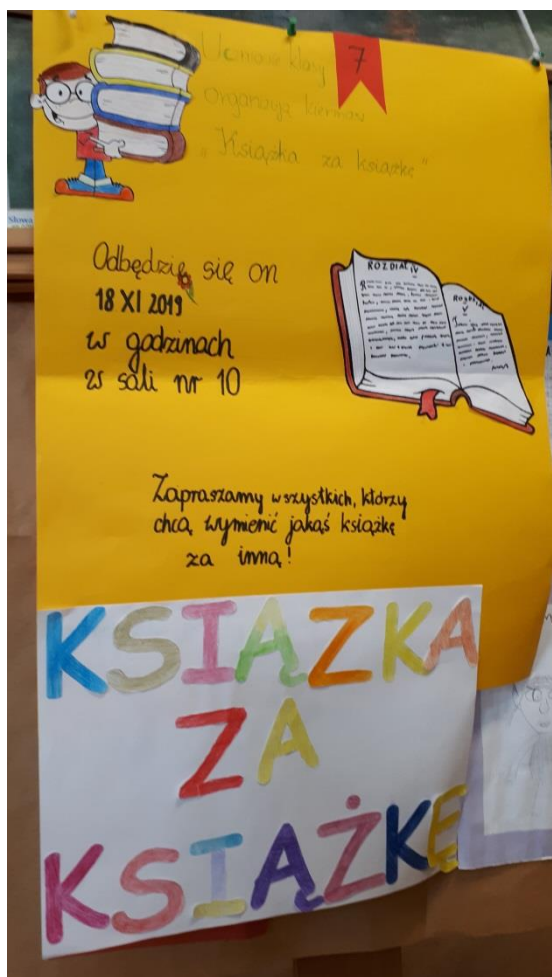 Uczniowie klasy 7
organizują kiermasz
„Książka za książkę"
Słowa
Odbędzie się on
18 XI 2019
w godzinach
w sali nr 10
ROZDIAŁ IV
Zapraszamy wszystkich, którzy
chcą wymienić jakąś książkę
za inną!
KSIĄZKA
ZA
KSIĄŻKĘ